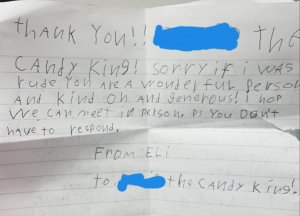 thANK YOU!! the
CANDY KING! sorry if i was
rude You are a wonderful person
And kind oh and generous! i hop
we can meet in person. PS You Don't
have to respond.
From: ELi
to: the CANDY King!